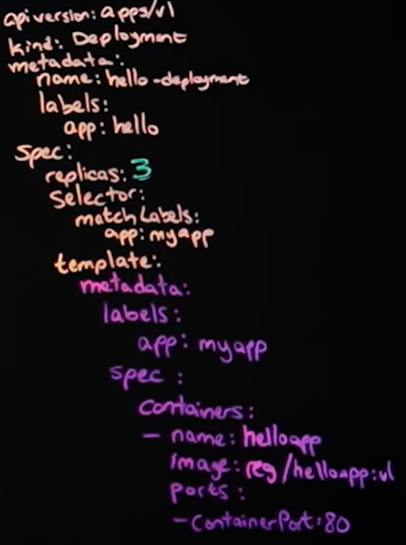 apiversion: apps/v1
kind: Deployment
metadata:
name: hello-deployment
labels:
app: hello
spec:
replicas: 3
selector:
matchLabels:
app: myapp
template:
metadata:
labels:
app: myapp
spec:
containers:
- name: helloapp
image: reg/helloapp:v1
ports:
- containerPort: 80